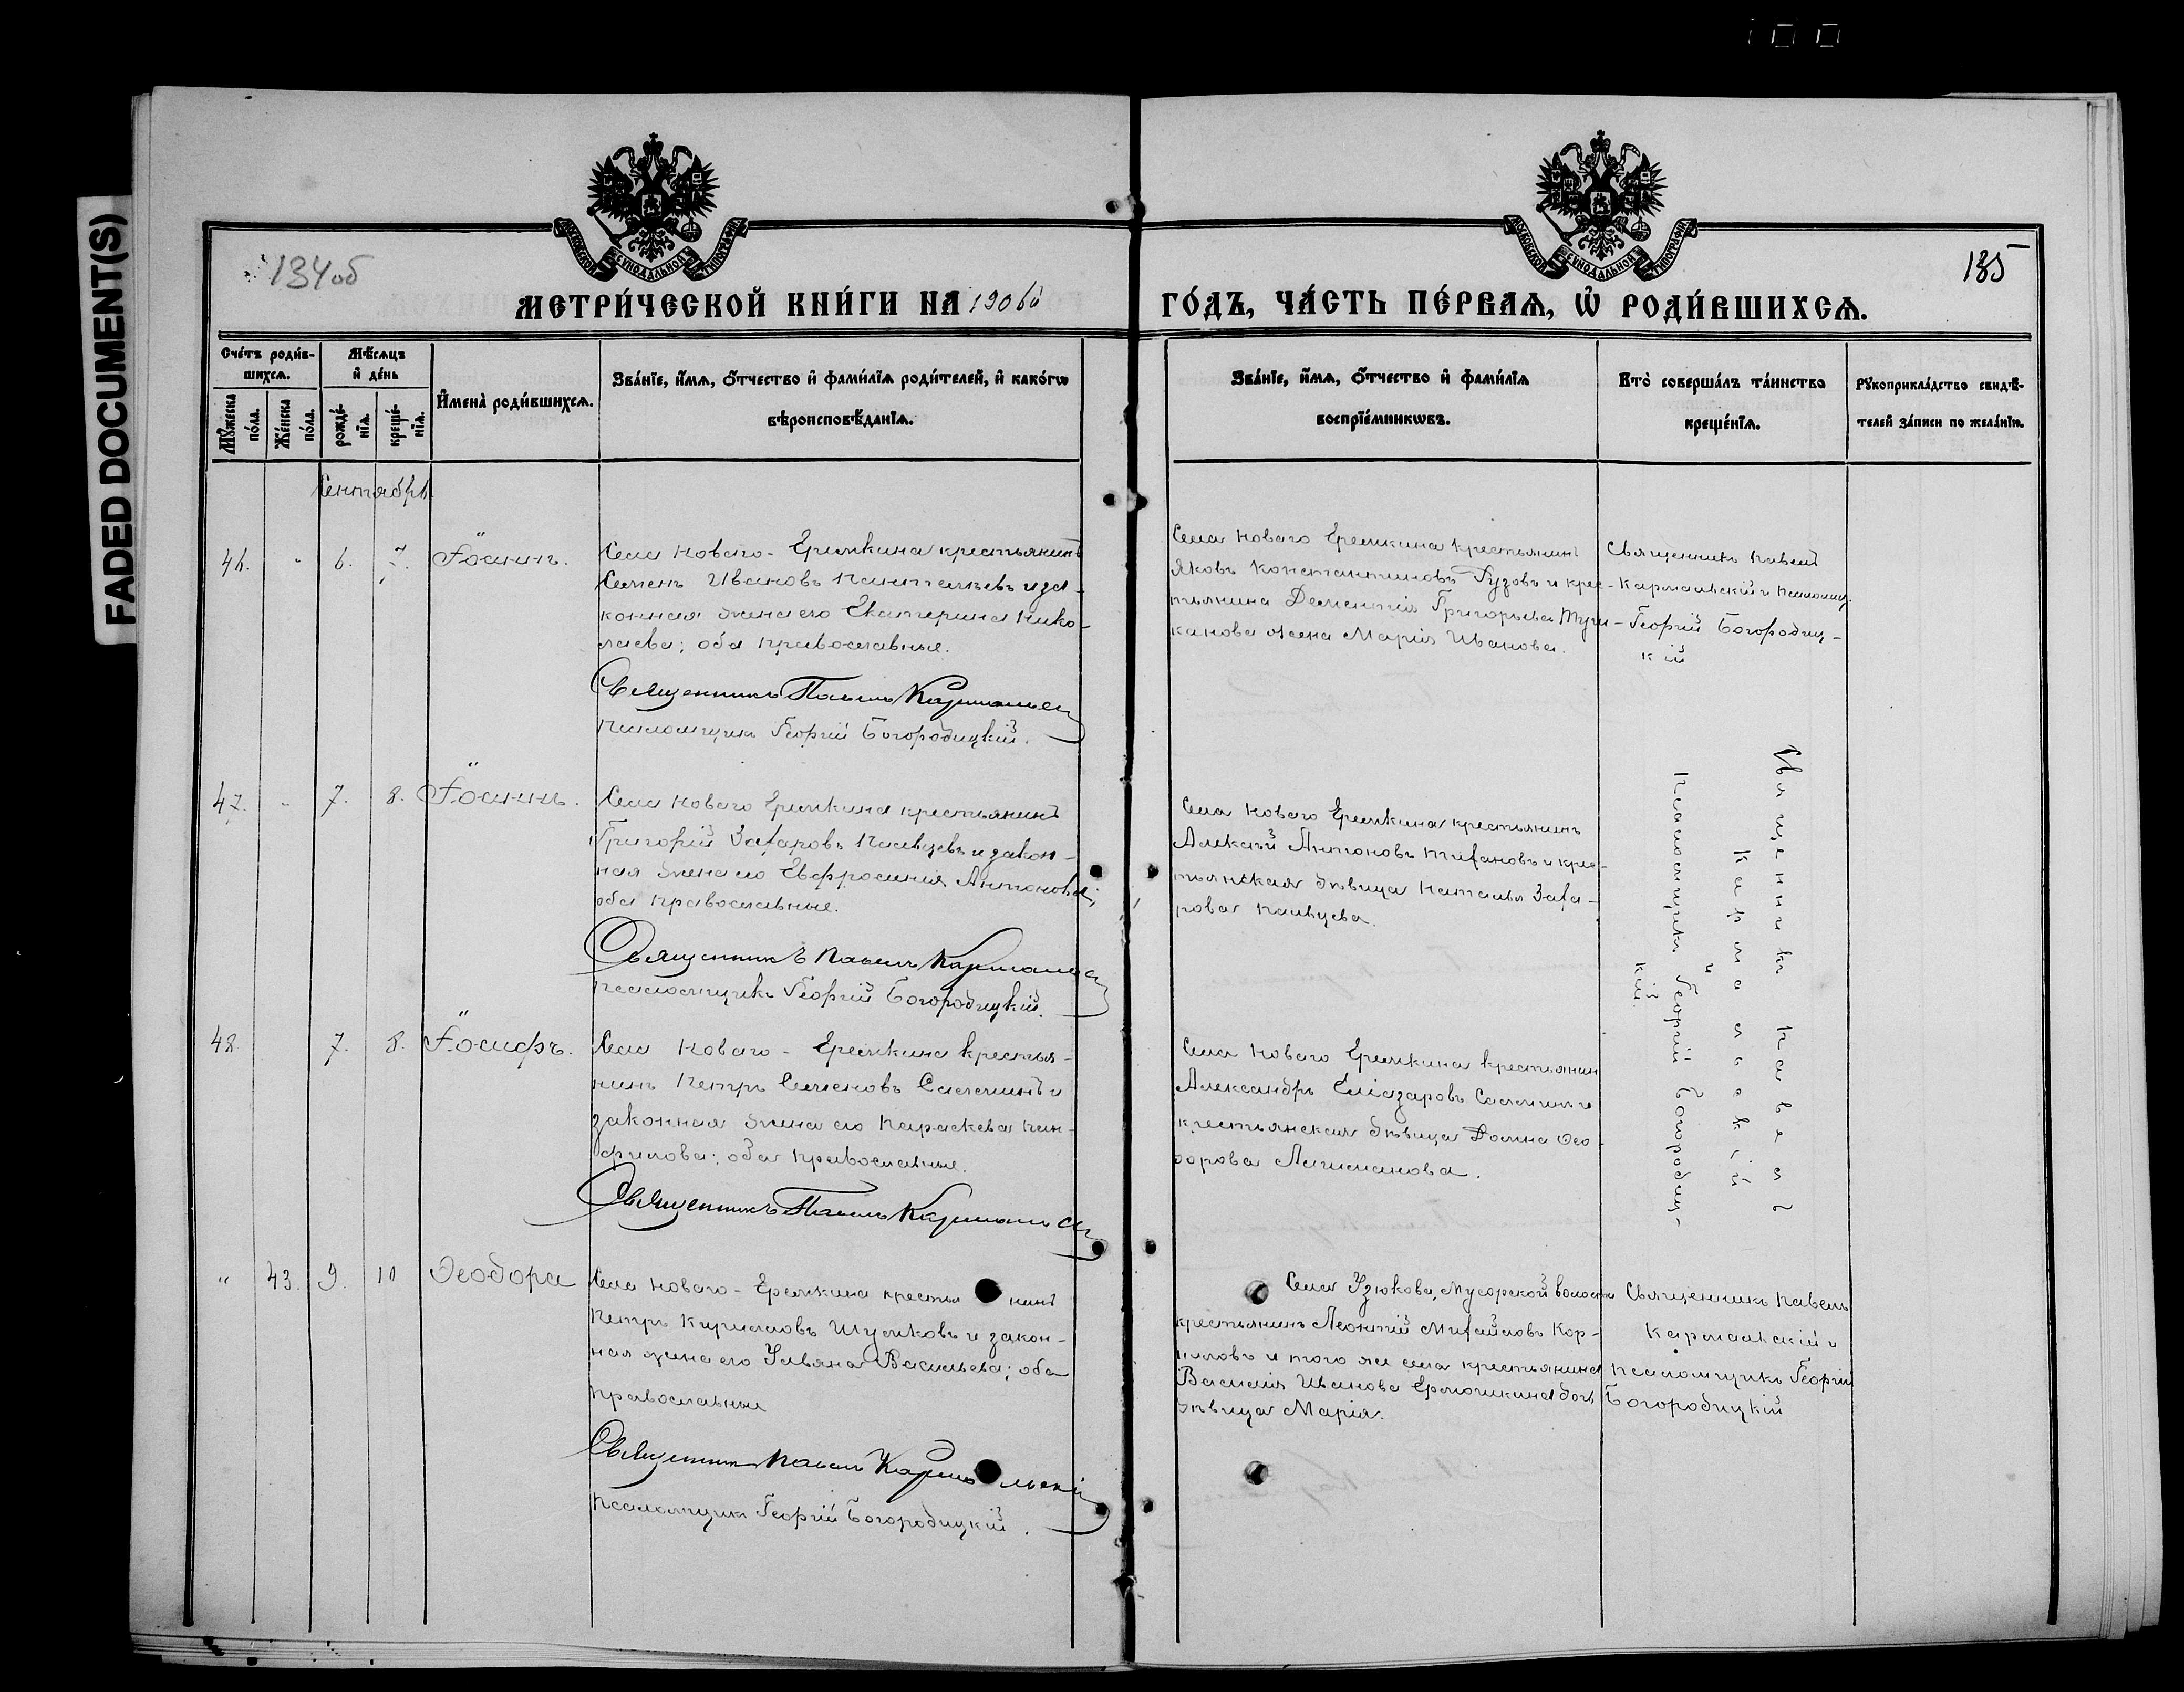 FADED DOCUMENT(S)
134об
135
МОСКОВСКОЙ СѴНОДАЛЬНОЙ ТИПОГРАФІИ
МОСКОВСКОЙ СѴНОДАЛЬНОЙ ТИПОГРАФІИ
МЕТРИ́ЧЕСКОЙ КНИ́ГИ НА 1906й ГО́ДЪ, ЧА́СТЬ ПЕ́РВАѦ, Ѡ҆ РОДИ́ВШИХСѦ.
Сче́тъ роди́в-
шихсѧ.
Мꙋ́жеска
по́ла.
Же́нска
по́ла.
Мѣ́сѧцъ
и҆ де́нь
рожде́-
нїѧ.
креще́-
нїѧ.
И҆мена̀ роди́вшихсѧ.
Зва́нїе, и҆́мѧ, ѻ҆́тчество и҆ фами́лїѧ роди́телей, и҆ како́гѡ
вѣроисповѣ́данїѧ.
Зва́нїе, и҆́мѧ, ѻ҆́тчество и҆ фами́лїѧ
воспрїе́мникѡвъ.
Кто̀ соверша́лъ та́инство
креще́нїѧ.
Рꙋкоприкла́дство свидѣ́-
телей за́писи по жела́нїю.
Сентябрь.
46. " 6. 7. Іоаннъ.
Села Новаго-Еремкина крестьянинъ
Семенъ Ивановъ Пантелѣевъ и за-
конная жена его Екатерина Нико-
лаева; оба православные.
Священникъ Павелъ Кармальск
Псаломщикъ Георгій Богородицкій.
Села Новаго Еремкина крестьянинъ
Яковъ Константиновъ Гузовъ и крес-
тьянина Дементія Григорьева
канова жена Марія Иванова.
Священникъ Павелъ
Кармальскій и Псаломщ.
Георгій Богородиц-
кій
47. " 7. 8. Іоаннъ.
Села Новаго Еремкина крестьянинъ
Григорій Захаровъ и закон-
ная жена его Евфросинія Антонова;
оба православные.
Священникъ Павелъ Кармальск
Псаломщикъ Георгій Богородицкій.
Села Новаго Еремкина крестьянинъ
Алексѣй Антоновъ и крес-
тьянская дѣвица Наталья Заха-
рова
Священникъ Павелъ
Кармальскій
и
Псаломщикъ Георгій Богородиц-
кій.
48. 7. 8. Іосифъ.
Села Новаго-Еремкина крестья-
нинъ Петръ Семеновъ и
законная жена его Параскева Пан-
филова; оба православные.
Священникъ Павелъ Кармальск
Села Новаго Еремкина крестьянин
Александръ Еліазаровъ и
крестьянская дѣвица Домна Ѳео-
дорова
" 43. 9. 10 Ѳеодора
Села Новаго-Еремкина крестья нинъ
Петръ Кирилловъ Шумковъ и закон-
ная жена его Ульяна Васильева; оба
православные
Священникъ Павелъ Карма льскій
Псаломщикъ Георгій Богородицкій.
Села Узюкова, Мусорской волости
крестьянинъ Леонтій Михайловъ Кор-
ниловъ и того же села крестьянина
Василія Иванова Ермошкина дочь
дѣвица Марія.
Священникъ Павелъ
Кармальскій и
Псаломщикъ Георгій
Богородицкій